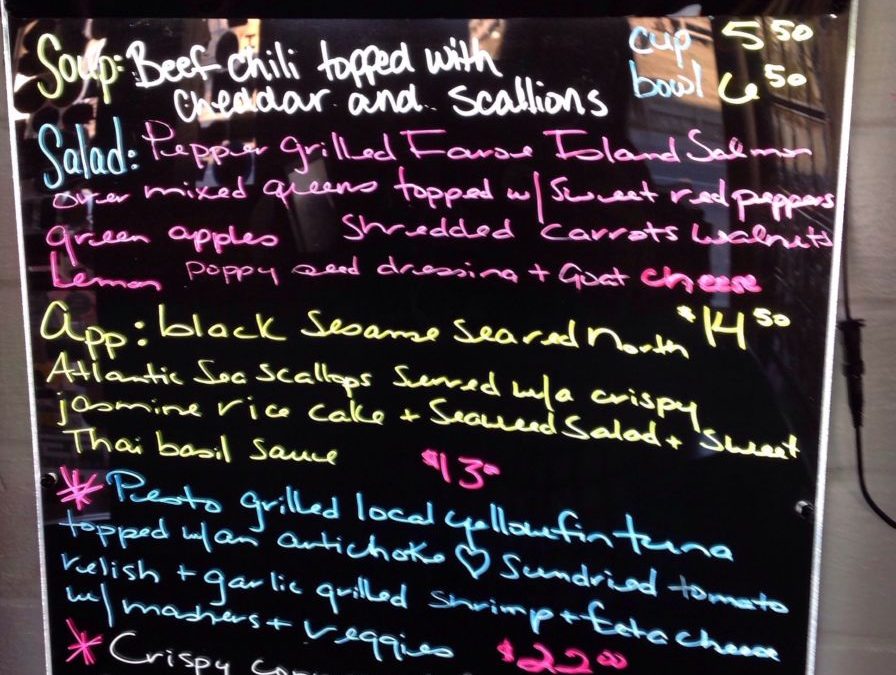 Soup: Beef chili topped with cup 5 50
cheddar and scallions bowl 6 50
Salad: Pepper grilled Faroe Island Salmon
over mixed greens topped w/ Sweet red peppers
green apples Shredded carrots walnuts
Lemon poppy seed dressing + Goat cheese
$14 50
App: black Sesame Seared North
Atlantic Sea Scallops Served w/a crispy
jasmine rice cake + Seaweed Salad + Sweet
Thai basil sauce $13
* Pesto grilled local yellowfin tuna
topped w/an artichoke ♡ Sundried tomato
relish + garlic grilled shrimp + feta cheese
w/ mashers + veggies $22 00
* Crispy